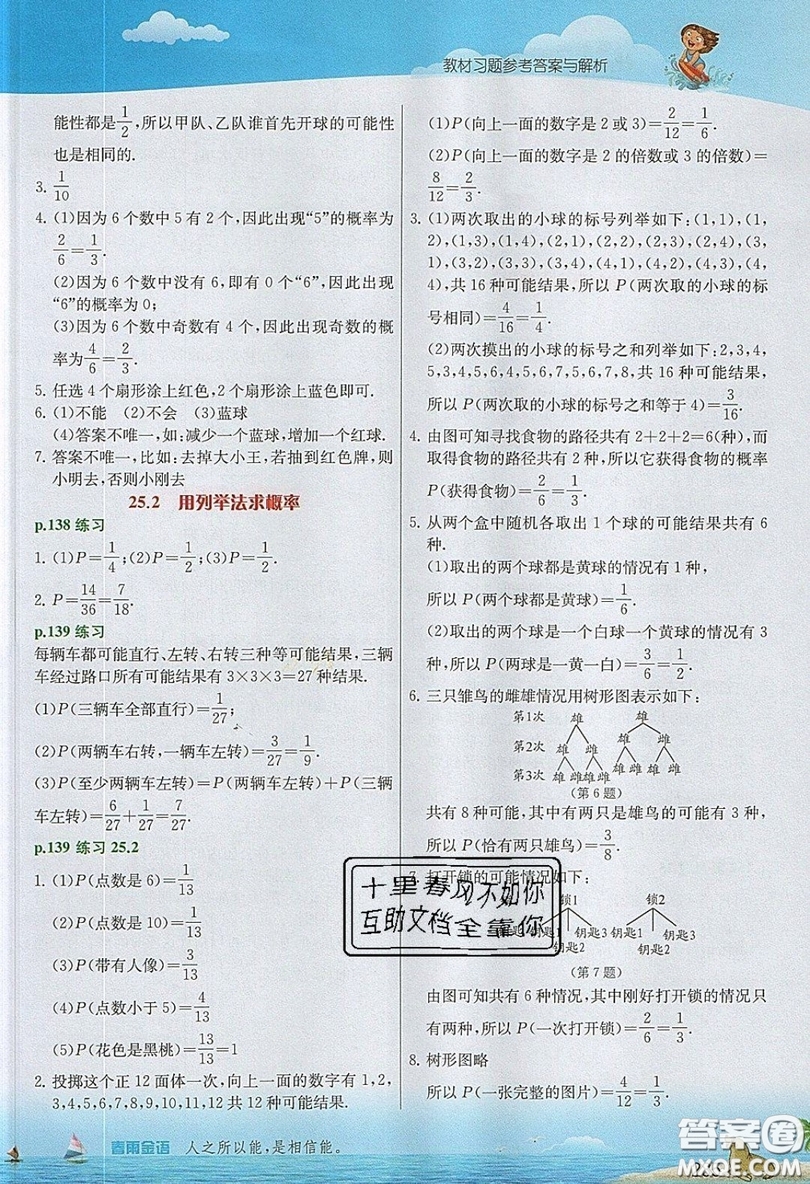 教材习题参考答案与解析
能性都是1/2,所以甲队、乙队谁首先开球的可能性
也是相同的.
3. 1/10
4. (1)因为 6 个数中 5 有 2 个,因此出现“5”的概率为
2/6=1/3.
(2)因为 6 个数中没有 6,即有 0 个“6”,因此出现
“6”的概率为 0;
(3)因为 6 个数中奇数有 4 个,因此出现奇数的概
率为4/6=2/3.
5. 任选 4 个扇形涂上红色,2 个扇形涂上蓝色即可.
6. (1)不能 (2)不会 (3)蓝球
(4)答案不唯一,如:减少一个蓝球,增加一个红球.
7. 答案不唯一,比如:去掉大小王,若抽到红色牌,则
小明去,否则小刚去
25.2 用列举法求概率
p.138 练习
1. (1)P=1/4;(2)P=1/2;(3)P=1/2.
2. P=14/36=7/18.
p.139 练习
每辆车都可能直行、左转、右转三种等可能结果,三辆
车经过路口所有可能结果有 3×3×3=27 种结果.
(1)P(三辆车全部直行)=1/27;
(2)P(两辆车右转,一辆车左转)=3/27=1/9.
(3)P(至少两辆车左转)=P(两辆车左转)+P(三辆
车左转)=6/27+1/27=7/27.
p.139 练习 25.2
1. (1)P(点数是 6)=1/13
(2)P(点数是 10)=1/13
(3)P(带有人像)=3/13
(4)P(点数小于 5)=4/13
(5)P(花色是黑桃)=13/13=1
2. 投掷这个正 12 面体一次,向上一面的数字有 1,2,
3,4,5,6,7,8,9,10,11,12 共 12 种可能结果.
(1)P(向上一面的数字是 2 或 3)=2/12=1/6.
(2)P(向上一面的数字是 2 的倍数或 3 的倍数)=
8/12=2/3.
3. (1)两次取出的小球的标号列举如下:(1,1),(1,
2),(1,3),(1,4),(2,1),(2,2),(2,3),(2,4),(3,
1),(3,2),(3,3),(3,4),(4,1),(4,2),(4,3),(4,
4),共 16 种可能结果,所以 P(两次取的小球的标
号相同)=4/16=1/4.
(2)两次摸出的小球的标号之和列举如下:2,3,4,
5,3,4,5,6,4,5,6,7,5,6,7,8,共 16 种可能结果,
所以 P(两次取的小球的标号之和等于 4)=3/16.
4. 由图可知寻找食物的路径共有 2+2+2=6(种),而
取得食物的路径共有两种,所以它获得食物的概率
P(获得食物)=2/6=1/3.
5. 从两个盒中随机各取出 1 个球的可能结果共有 6
种.
(1)取出的两个球都是黄球的情况有 1 种,
所以 P(取出的两个球都是黄球)=1/6.
(2)取出的两个球是一个白球一个黄球的情况有 3
种,所以 P(两球是一黄一白)=3/6=1/2.
6. 三只雏鸟的雌雄情况用树形图表示如下:
第1次 雄 雌
第2次 雄 雌 雄 雌
第3次 雄雌雄雌雄雌雄雌
(第 6 题)
共有 8 种可能,其中有两只是雄鸟的可能有 3 种,
所以 P(恰有两只雄鸟)=3/8.
7. 打开锁的可能情况如下:
锁1 锁2
钥匙1 钥匙3 钥匙1 钥匙3
钥匙2 钥匙2
(第 7 题)
由图可知共有 6 种情况,其中刚好打开锁的情况只
有两种,所以 P(一次打开锁)=2/6=1/3.
8. 树形图略
所以 P(一张完整的图片)=4/12=1/3.
十里春风不如你
互助文档全靠你
春雨金语 人之所以能,是相信能。
答案圈
MXQE.COM